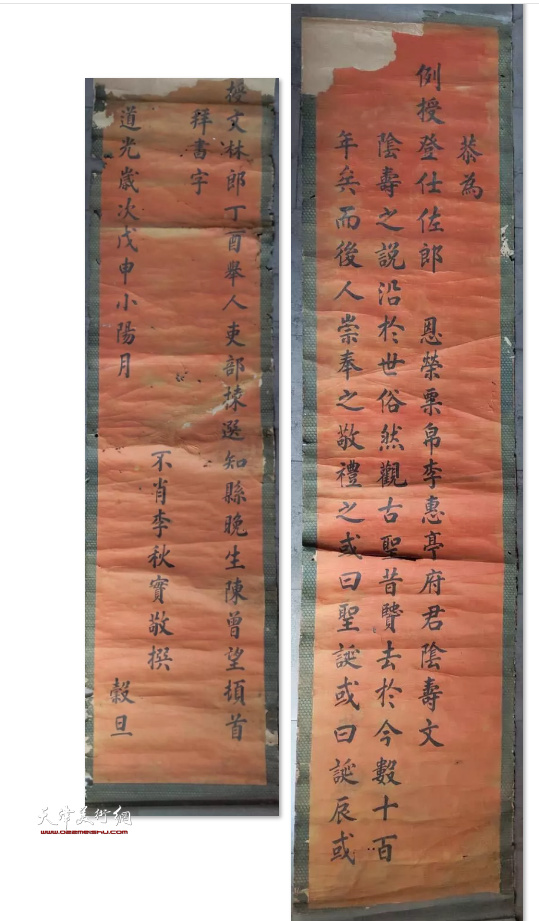 恭為
例授登仕佐郎 恩榮粟帛李惠亭府君陰壽文
陰壽之說沿於世俗然觀古聖昔賢去於今數十百
年矣而後人崇奉之敬禮之或曰聖誕或曰誕辰或
授文林郎丁酉舉人吏部揀選知縣晚生陳曾望頓首
拜書字
不肖李秋實敬撰
道光歲次戊申小陽月 穀旦
天津美術網
www.022meishu.com